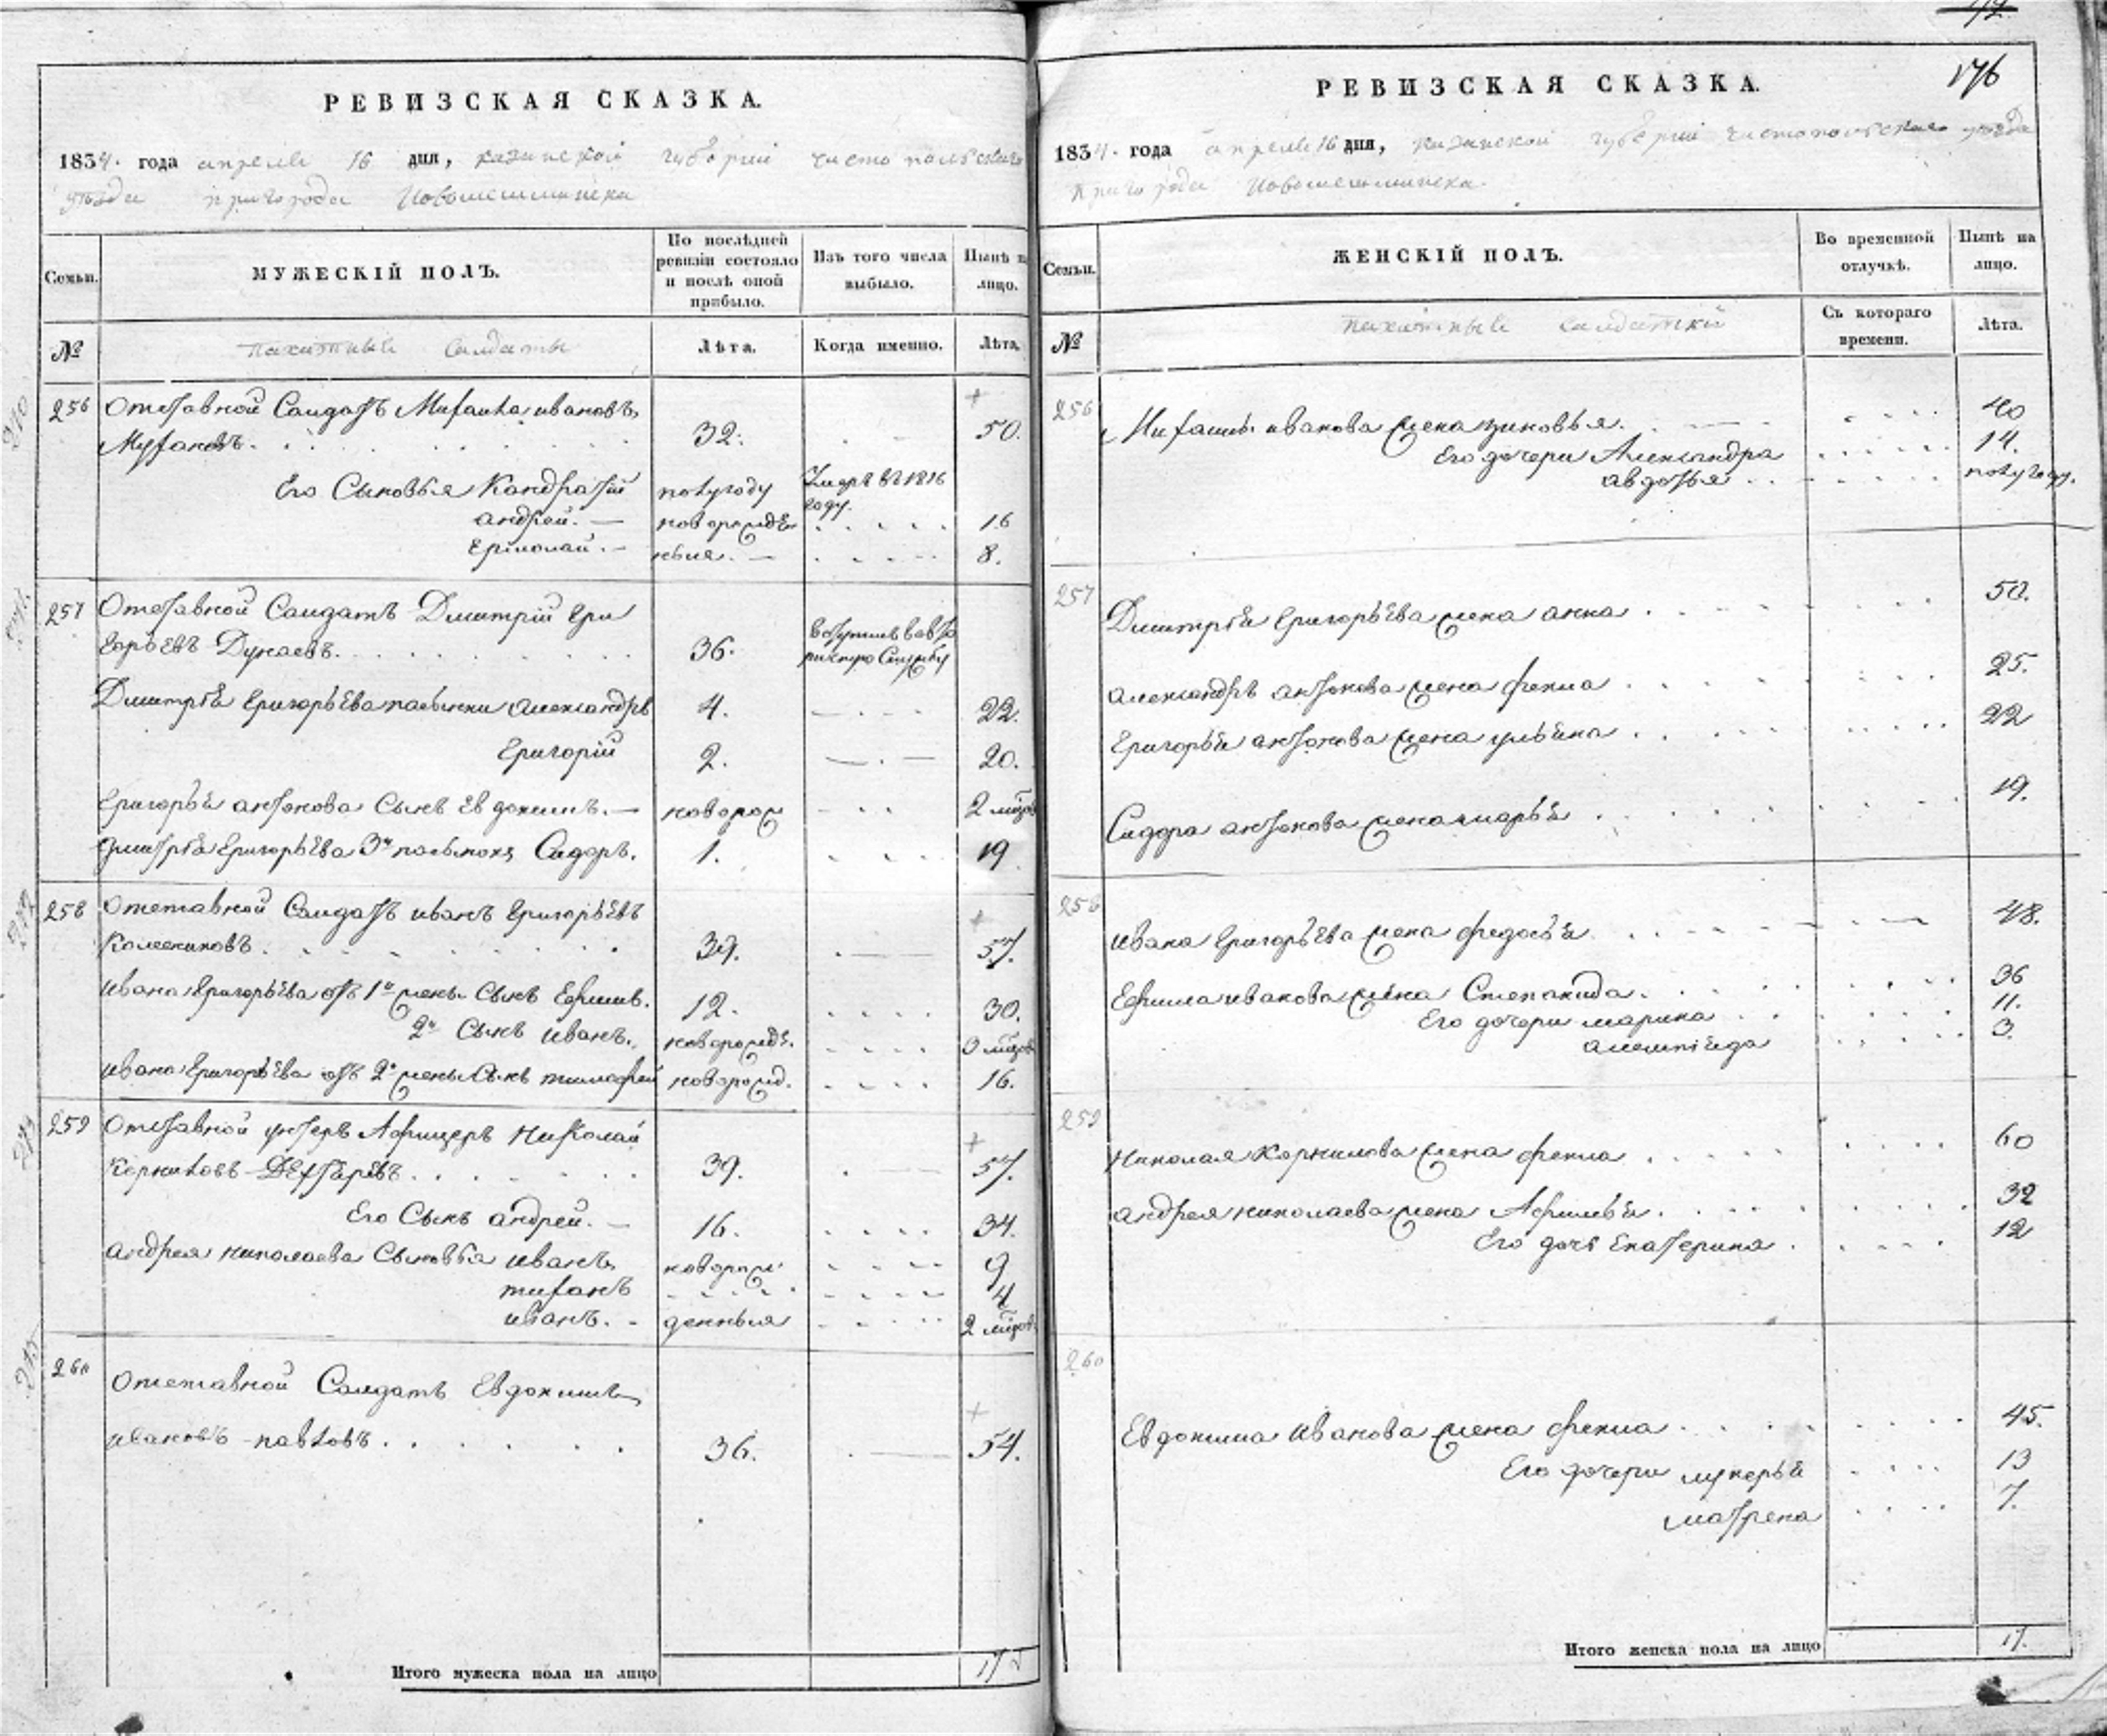 РЕВИЗСКАЯ СКАЗКА.
1834. года апреля 16 дня, казанской губернии чистопольскаго
уезда пригорода Новошешминска
Семьи.
МУЖЕСКІЙ ПОЛЪ.
По послѣдней ревизіи состояло и послѣ оной прибыло.
Изъ того числа выбыло.
Нынѣ на лицо.
№
пахатныи салдаты
Лѣта.
Когда именно.
Лѣта.
256 Отставной Салдатъ Михаила ивановъ
32. 50.
Его Сыновья Кандратій полугоду Умеръ въ 1816 году.
андрей. новорожде 16
Ермолай. ныя. 8.
257 Отставной Салдатъ Дмитрій Гри
горьевъ Дунаевъ. 36.
Дмитрея Григорьева пасынки александръ 4. 22.
Григорій 2. 20.
Григорья антонова Сынъ Евдокимъ. новорож 2 мѣсяц
Дмитрея Григорьева 3й пасынокъ Сидоръ. 1. 19
258 Отставной Салдатъ иванъ Григорьевъ
Колесниковъ. 39. 57.
ивана Григорьева отъ 1й жены Сынъ Ефимъ. 12. 30.
2й Сынъ иванъ. новорожде. 3 мѣсяц
ивана Григорьева отъ 2й жены Сынъ тимофей новорожд. 16.
259 Отставной унтеръ Афицеръ Николай
Корниловъ Дехтяревъ. 39. 57.
Его Сынъ андрей. 16. 34.
андрея николаева Сыновья иванъ новорож 9
4
иванъ. денныя 2 мѣсяц
260 Отставной Салдатъ Евдокимъ
ивановъ павловъ. 36. 54.
Итого мужеска пола на лицо
176
РЕВИЗСКАЯ СКАЗКА.
1834. года апреля 16 дня, казанской губерніи чистопольскаго уезда
пригорода Новошешминска.
Семьи.
ЖЕНСКІЙ ПОЛЪ.
Во временной отлучкѣ.
Нынѣ на лицо.
№
пахатныи салдатки
Съ котораго времени.
Лѣта.
256 иванова жена зиновья. 40
Его дочери Александра 14.
авдотья полугоду.
257 Дмитрея Григорьева жена анна 50.
александръ антонова жена фекла 25.
Григорья антонова жена ульяна 22
Сидора антонова жена марья 19.
258 ивана Григорьева жена федосья 48.
Ефима иванова жена Степанида. 36
Его дочери марина 11.
3.
259 Николая Корнилова жена фекла 60
андрея николаева жена Афимья 32
Его дочь Екатерина 12
260 Евдокима Иванова жена фекла 45.
Его дочери лукерья 13
матрена 7.
Итого женска пола на лицо 17.